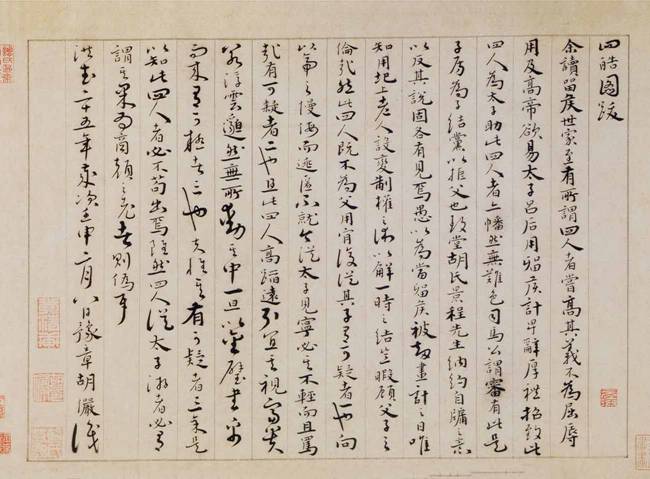 四皓圖跋
余讀留侯世家至有所謂四人者嘗高其義不為屈辱
用及高帝欲易太子呂后用留侯計卑辭厚禮招致此
四人為太子助此四人者上幡然無難色司馬公謂審有此是
子房為子結黨以拒父也致堂胡氏景程先生納約自牖之意
以反其說固各有見焉愚以為當留侯被劫畫計之日唯
知用圯上老人設變制權之術以解一時之結豈暇顧父子之
倫哉然此四人既不為父用肯復從其子有可疑者一也向
以帝之慢侮而逃匿不就今從太子見寧必其不輕而且罵
哉有可疑者二也且此四人高蹈遠引宜其視富貴
若浮雲邈然無所動其中一旦以金璧書帛
而來有可疑者三也夫惟其有可疑者三余是
以知此四人者必不苟出焉雖然四人從太子游者必有
謂之果為商顏之老者則偽耳
洪武二十五年歲次壬申二月八日豫章胡儼識